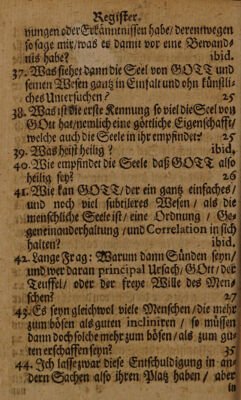 Register.
nungen oder Erkänntnissen habe/ derentwegen
so sage mir/ was es damit vor eine Bewand-
nis habe? ibid.
37. Was siehet dann die Seel von GOTT und
seinen Wesen gantz in Einfalt und ohn künstli-
ches Untersuchen? 25
38. Was ist die erste Kennung so viel die Seel von
GOtt hat/nemlich eine göttliche Eigenschafft/
welche auch die Seele in ihr empfindet? 25
39. Was heist heilig? ibid.
40. Wie empfindet die Seele daß GOTT also
heilig sey? 26
41. Wie kan GOTT/ der ein gantz einfaches/
und noch viel subtileres Wesen/ als die
menschliche Seele ist/ eine Ordnung/ Ge-
geneinanderhaltung/ und Correlation in sich
halten? ibid.
42. Lange Frag: Warum dann Sünden seyn/
und wer daran principal Ursach/ GOtt/ der
Teuffel/ oder der freye Wille des Men-
schen? 27
43. Es seyn gleichwol viele Menschen/ die mehr
zum bösen als guten incliniren/ so müssen
dann doch solche mehr zum bösen/ als zum gu-
ten erschaffen seyn? 35
44. Ich lasse zwar diese Entschuldigung in an-
dern Sachen also ihren Platz haben/ aber
in